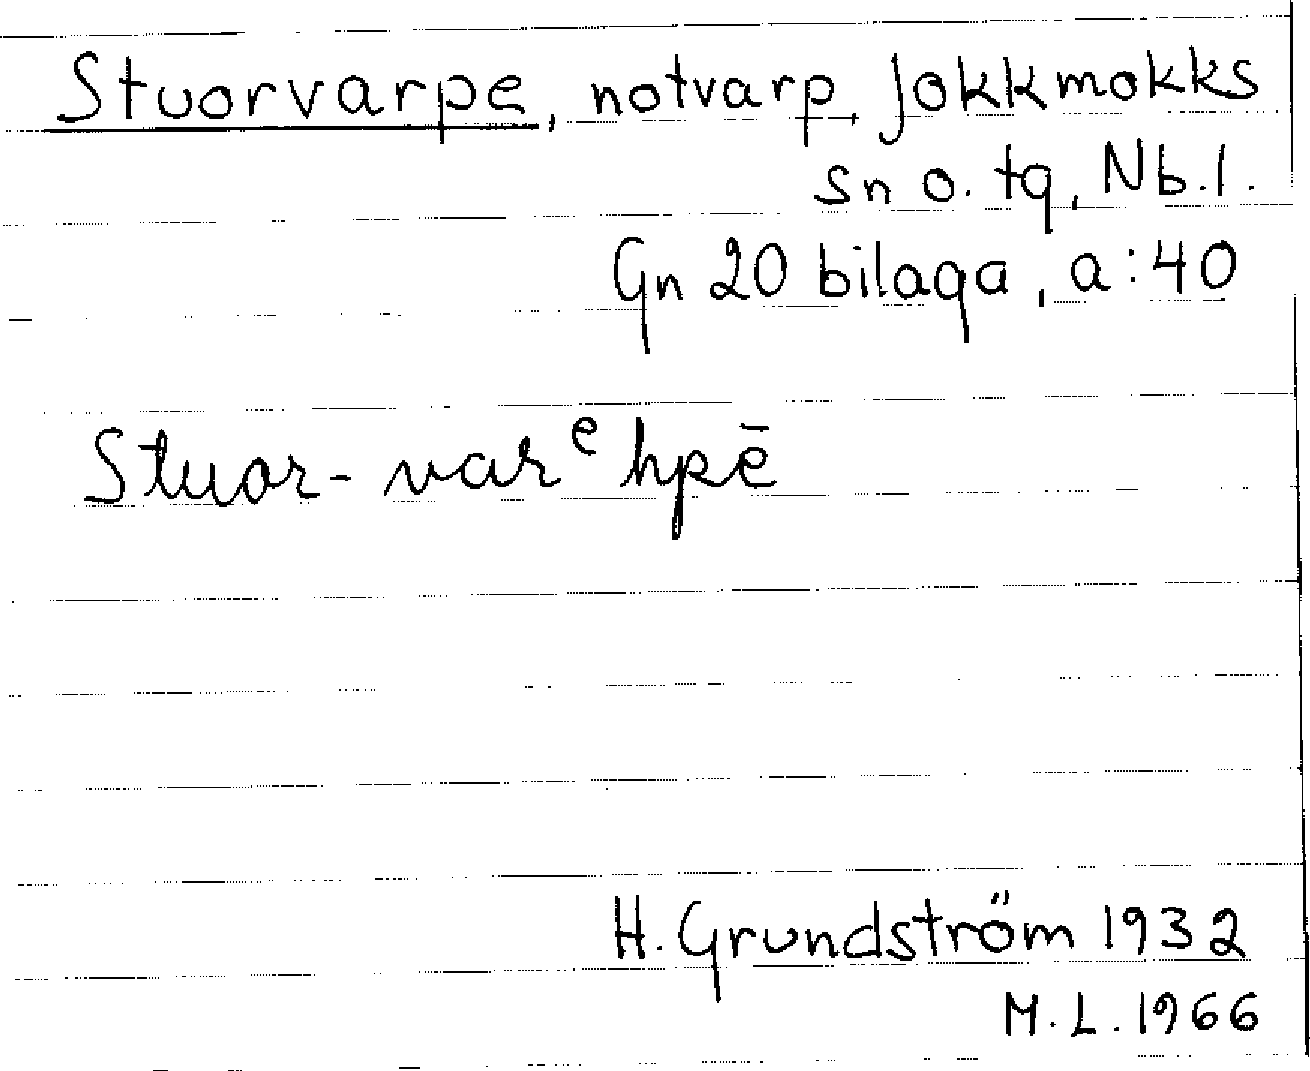 Stuorvarpe, notvarp, Jokkmokks
sn o. tg, Nb.l.
Gn 20 bilaga, a:40
Stuor-varᵉhpē
H. Grundström 1932
M.L. 1966